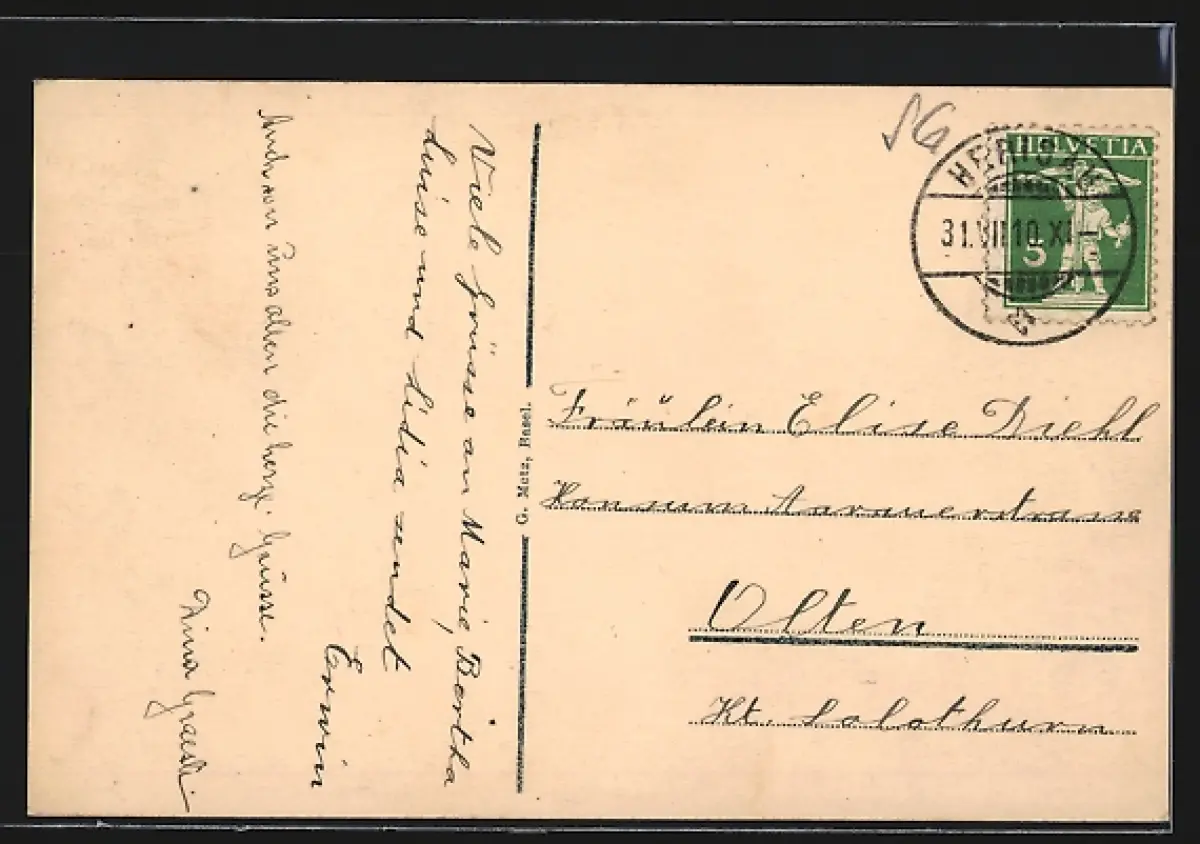 Viele Grüsse an Marie, Bertha
Luise und Lidia sendet
Erwin
Auch von uns allen die herzg. Grüsse.
G. Metz, Basel.
SG
HELVETIA
5
HERISAU
31.VII.10.XI-
Fräulein Elise Diehl
Konsum Aarauerstrasse
Olten
Kt. Solothurn